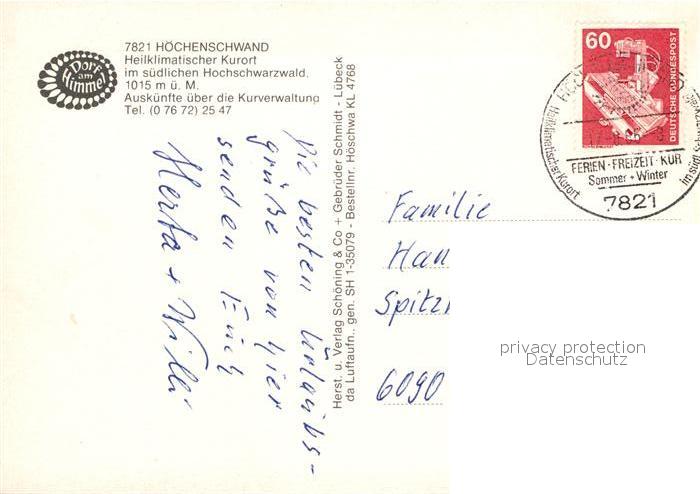 Dorf
am
Himmel
7821 HÖCHENSCHWAND
Heilklimatischer Kurort
im südlichen Hochschwarzwald,
1015 m ü. M.
Auskünfte über die Kurverwaltung
Tel. (0 76 72) 25 47
Die besten Urlaubs-
grüße von hier
senden Euch
Herta + Willi
Herst. u. Verlag Schöning & Co + Gebrüder Schmidt - Lübeck
da Luftaufn.. gen. SH 1-35079 - Bestellnr. Höschwa KL 4768
60
DEUTSCHE BUNDESPOST
Heilklimatischer Kurort
FERIEN·FREIZEIT·KUR
Sommer + Winter
7821
Familie
Han
Spitz
6090
privacy protection
Datenschutz